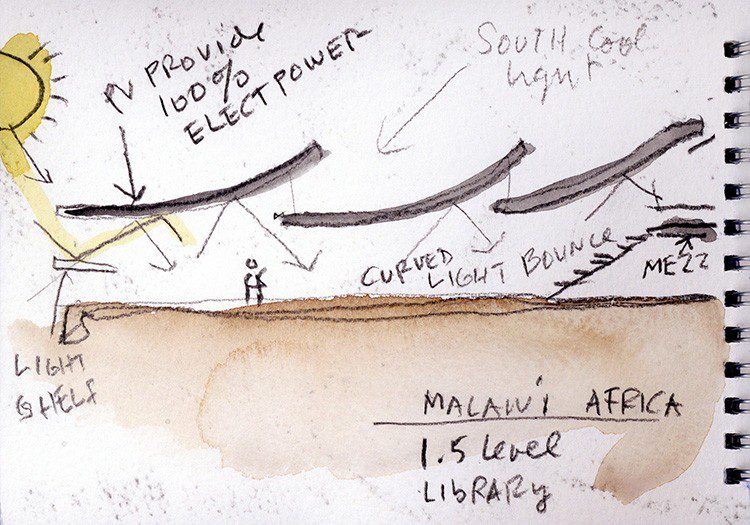 PV PROVIDE
100%
ELECT POWER
SOUTH COOL
light
CURVED
LIGHT BOUNCE
MEZZ
LIGHT
SHELF
MALAWI AFRICA
1.5 Level
LIBRARY